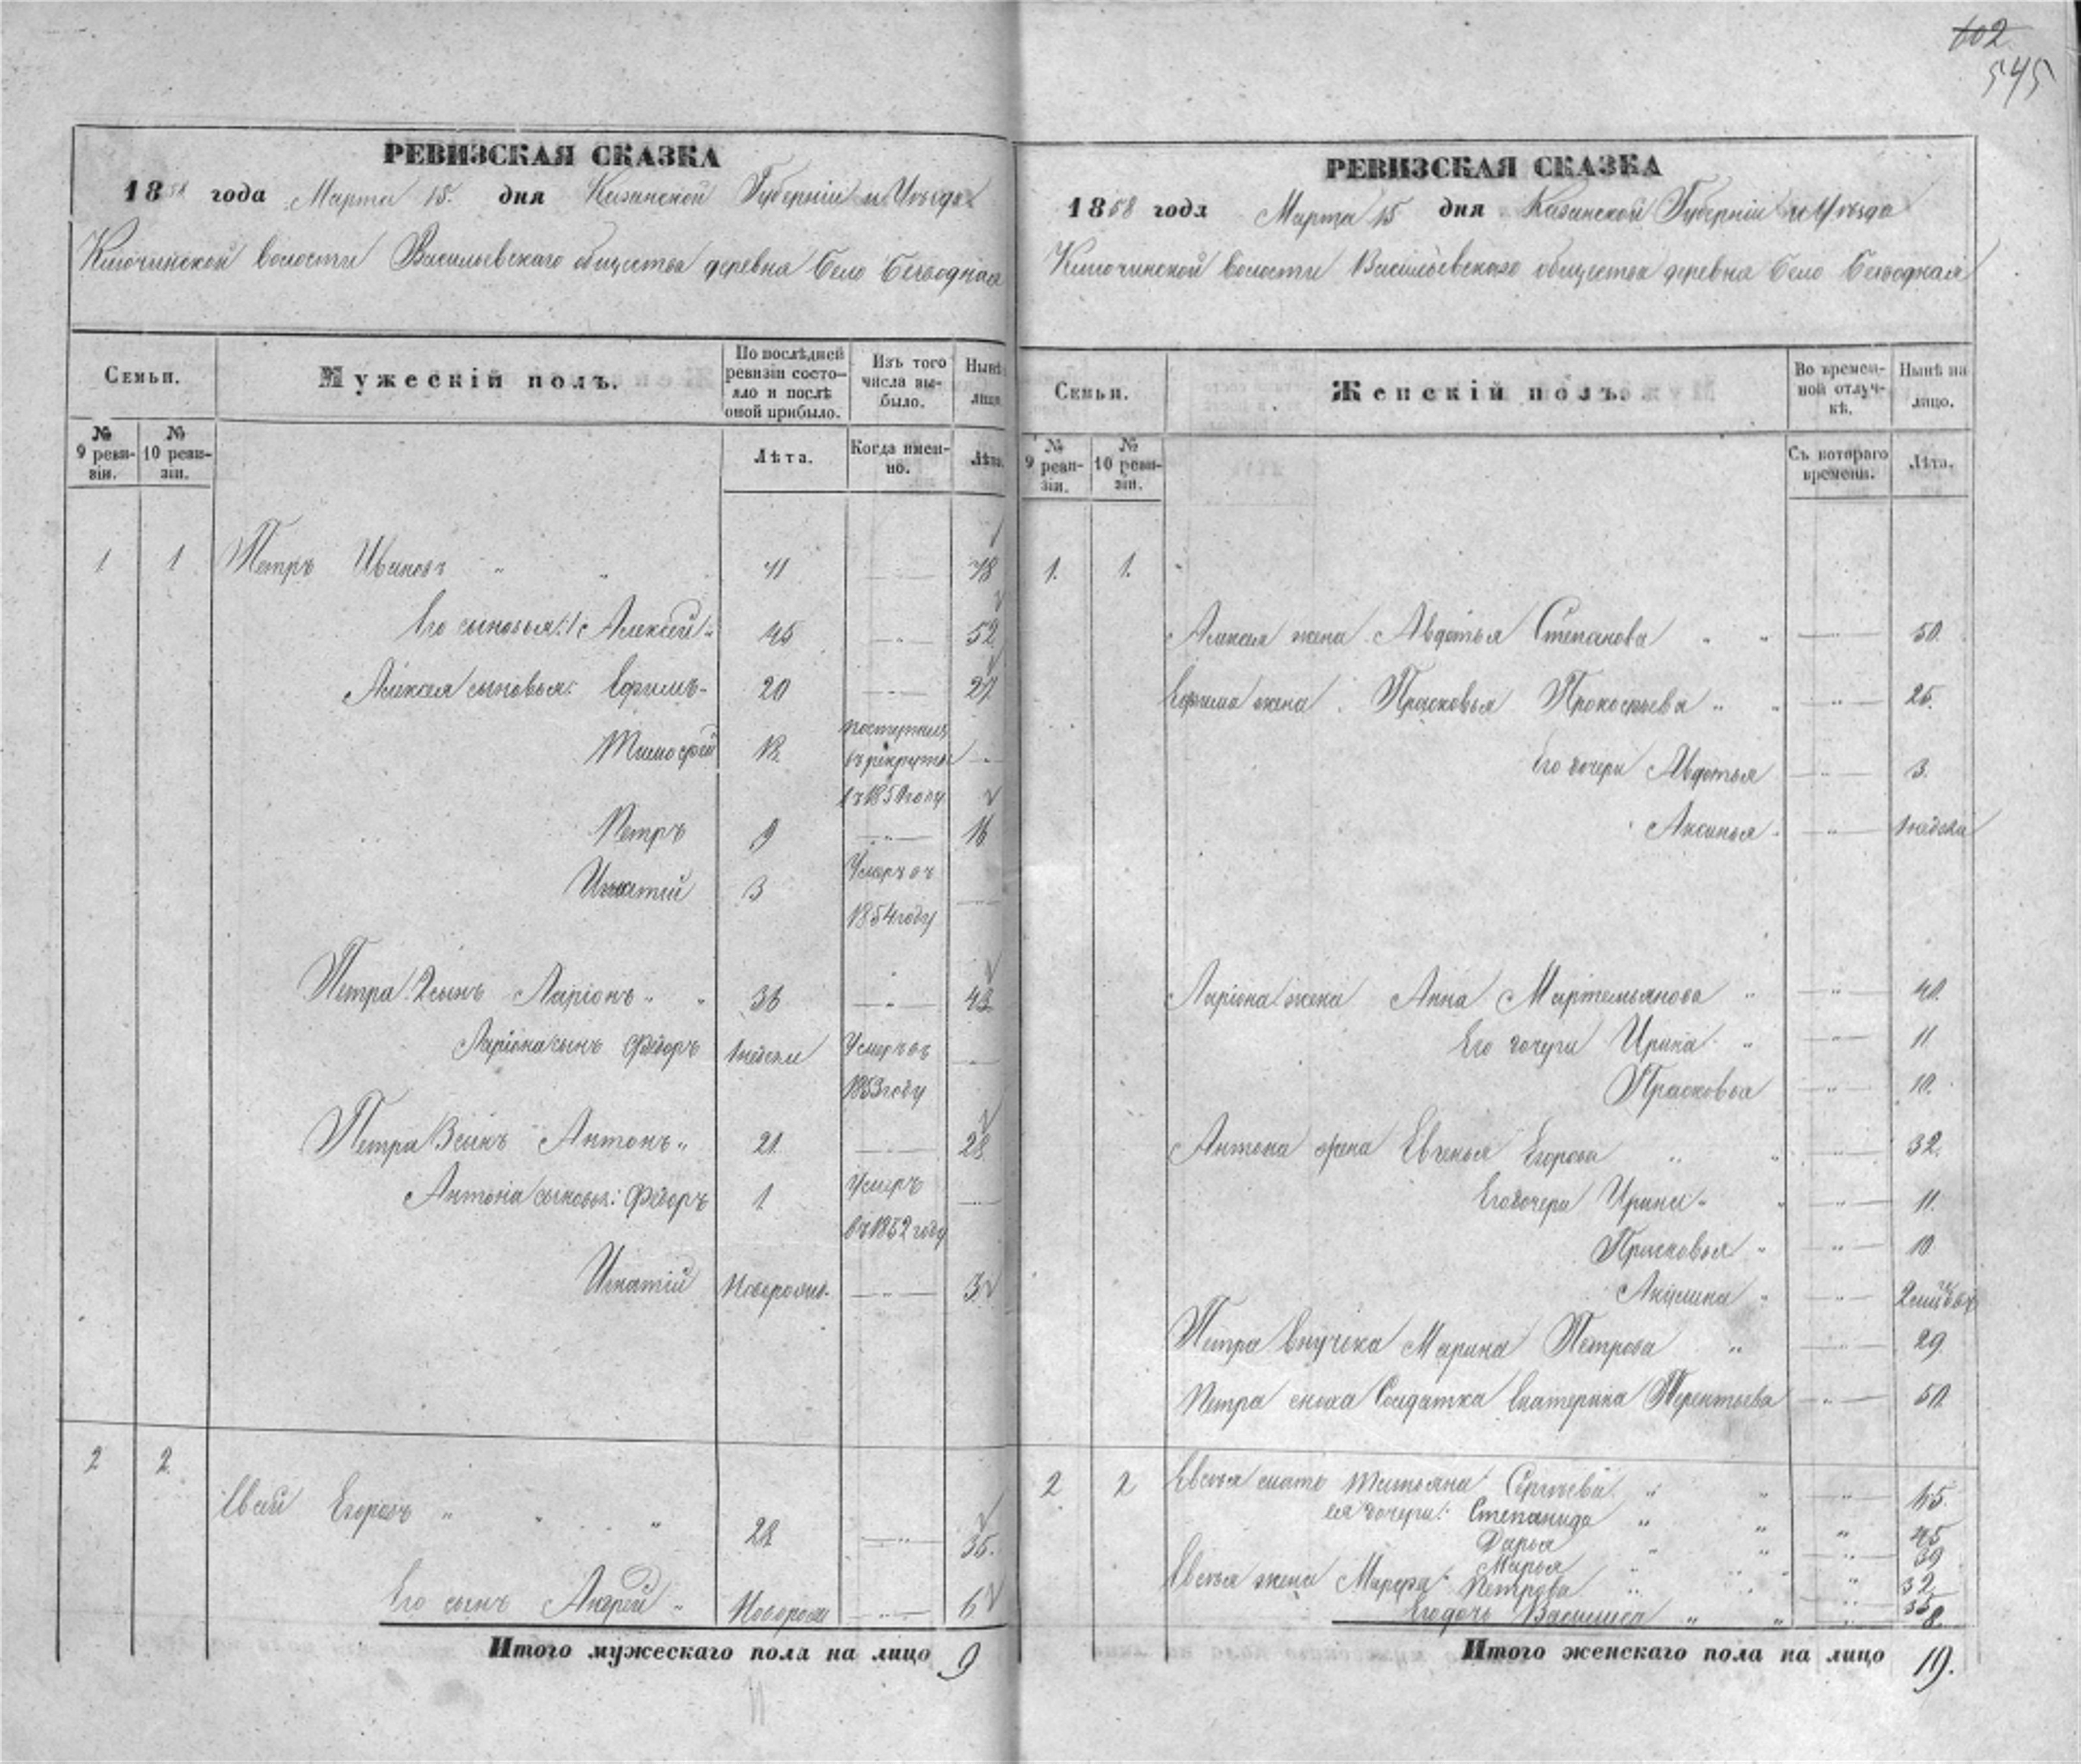 602
545
РЕВИЗСКАЯ СКАЗКА
1858 года Марта 15. дня Казанской Губерніи и Уѣзда
Ключинской волости Васильевскаго общества деревна Село Безводная
Семьи.
Мужескій полъ.
По послѣдней ревизіи состояло и послѣ оной прибыло.
Изъ того числа выбыло.
Нынѣ лицо.
№ 9 ревизіи.
№ 10 ревизіи.
Лѣта.
Когда именно.
Лѣта.
1 1 Петръ Ивановъ " " 71 78
Его сыновья: 1й Алексѣй " 45 52
Алексѣя сыновья: Ефимъ 20 27
Тимофѣй 12 поступилъ въ рекруты въ 185 году
Петръ 9 16
Игнатій 3 Умеръ въ 1854 году
Петра 2 сынъ Ларіонъ " " 36 43
Ларіона сынъ Ѳёдоръ Умеръ въ 1853 году
Петра 3 сынъ Антонъ " 21 28
Антона сыновья: Ѳёдоръ 1 Умеръ въ 1852 году
Игнатій Новорожд. 3
2 2
Евсѣй Егоровъ " " " 28 35.
Его сынъ Андрей " Новорож 6
Итого мужескаго пола на лицо 9
РЕВИЗСКАЯ СКАЗКА
1858 года Марта 15 дня Казанской Губерніи и Уѣзда
Ключинской волости Васильевскаго общества деревна Село Безводная
Семьи.
Женскій полъ.
Во временной отлучкѣ.
Нынѣ на лицо.
№ 9 ревизіи.
№ 10 ревизіи.
Съ котораго времени.
Лѣта.
1. 1.
Алексѣя жена Авдотья Степанова " " 50.
Ефима жена Прасковья Прокофьева " " 25.
Его дочери Авдотья 3.
Аксинья недели
Ларіона жена Анна Мартемьянова " 40.
Его дочери Ирина " 11
Прасковья 10.
Антона жена Евгенья Егорова " " 32.
Его дочери Ирина " 11.
Прасковья " 10
Акулина "
Петра внучека Марина Петрова " 29
Петра сноха Солдатка Екатерина Терентьева 50.
2 2 Евсѣя мать Татьяна Сергѣева " " 65.
ея дочери: Степанида " " 45
Дарья " " 39
Марья " " 32
Евсѣя жена Марфа Петрова " " 35
Его дочь Василиса " " 8.
Итого женскаго пола на лицо 19.